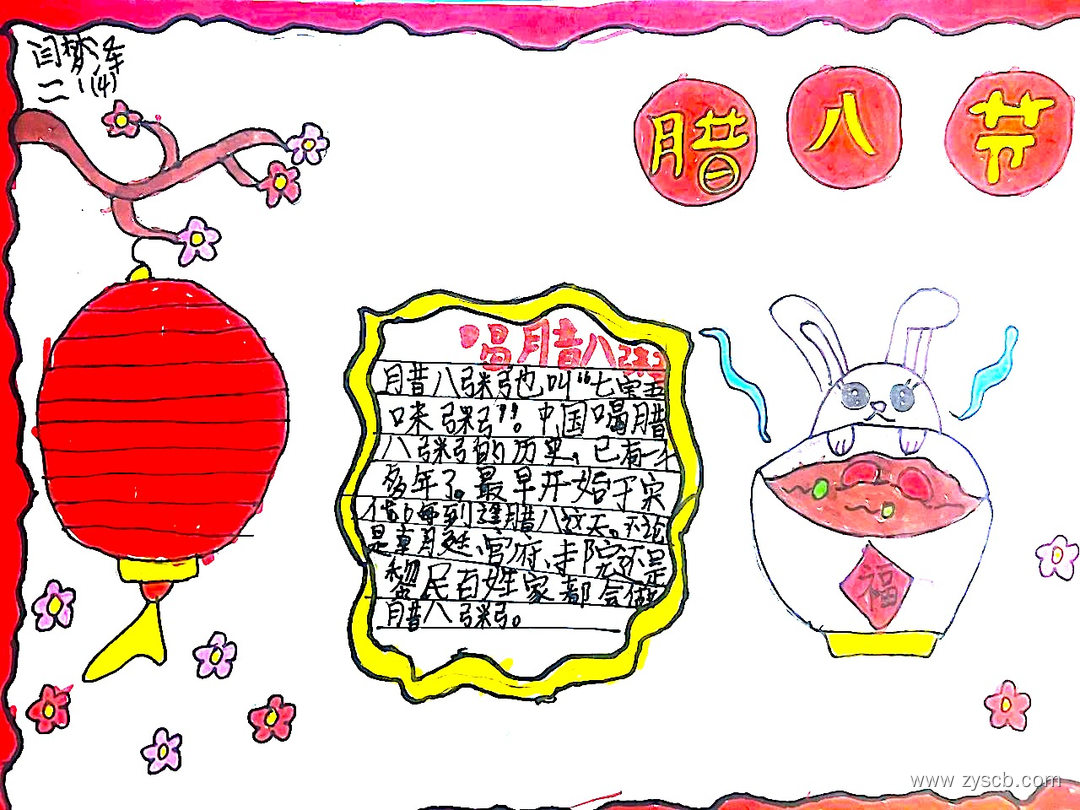 闫梦泽
二(4)
腊八节
喝腊八粥
腊八粥也叫“七宝五
味粥”。中国喝腊
八粥的历史,已有一千
多年了。最早开始于宋
代。每到逢腊八这天。不论
是朝廷、官府、寺院还是
黎民百姓家都会做
腊八粥。
福
www.zyscb.com